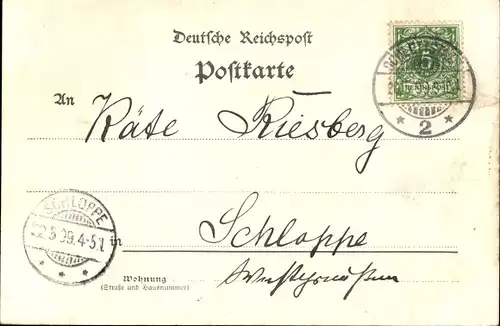 Deutsche Reichspost
Postkarte
An Käte Riesberg
in Schloppe
Westpreußen
Wohnung
(Straße und Hausnummer)
SCHLOPPE
22.5.99.4-5N
REICHSPOST
2